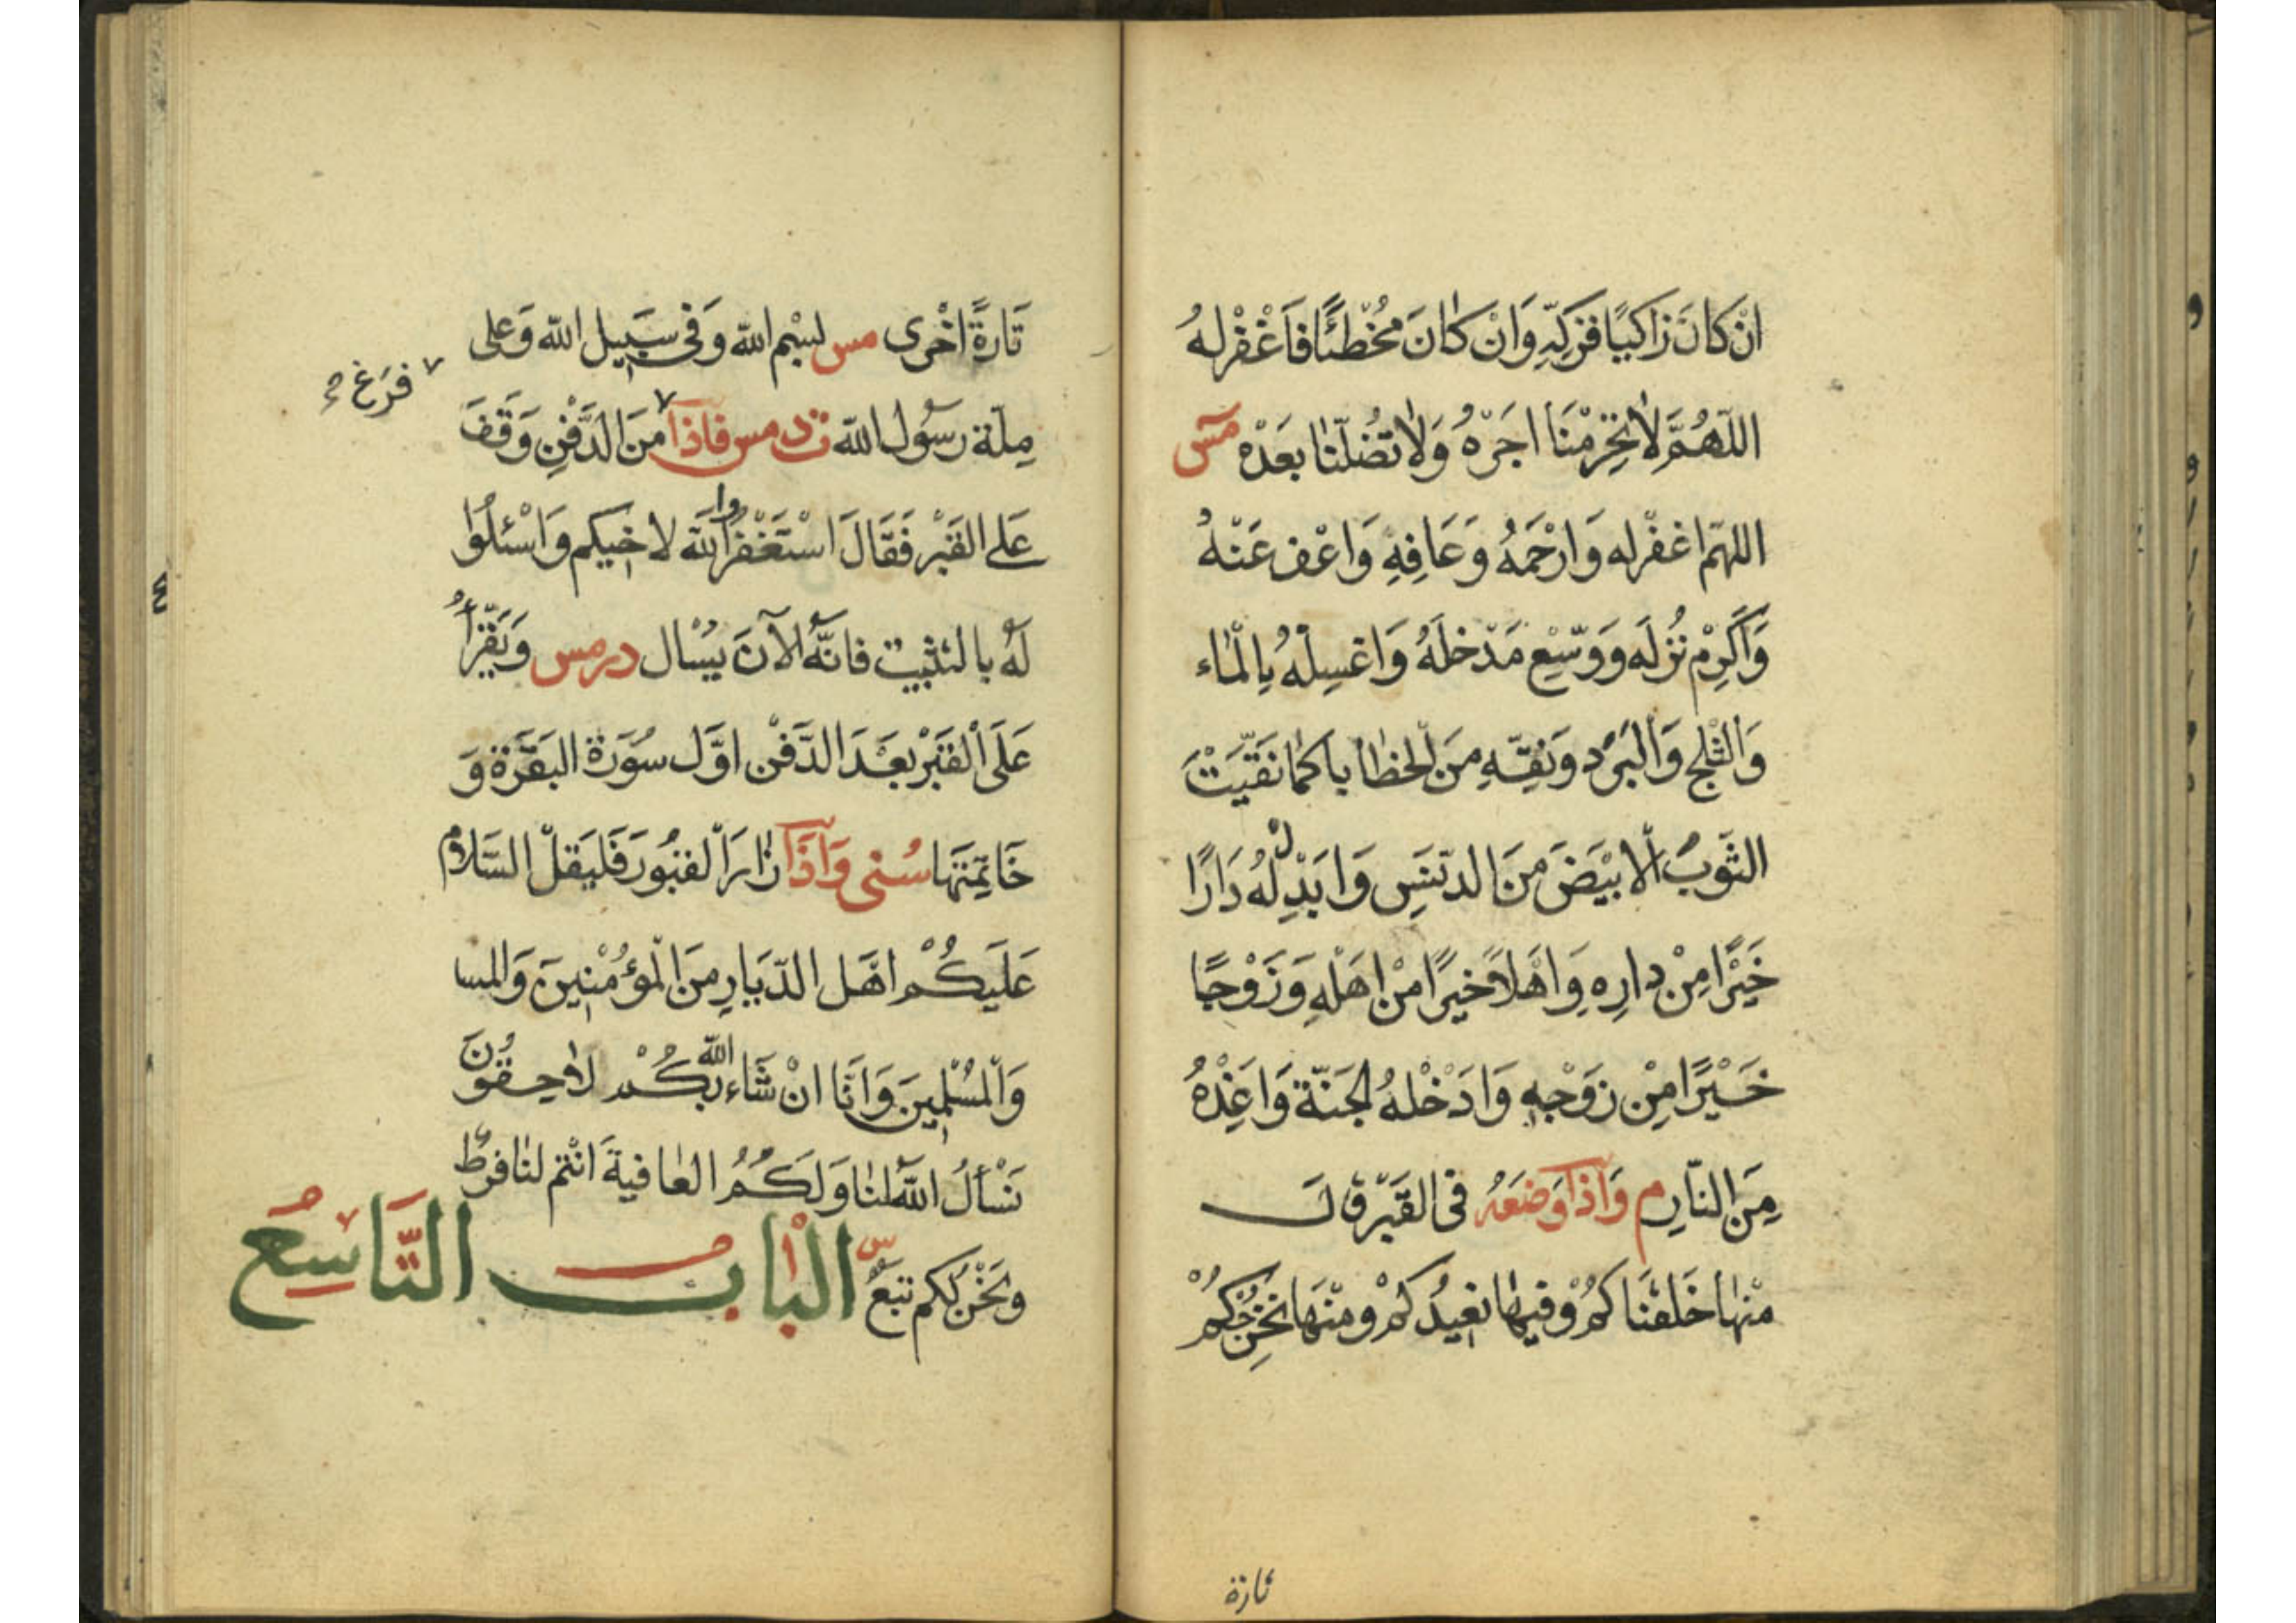 اِنْ كَانَ زَاكِيًا فَزَكِّهِ وَاِنْ كَانَ مُخْطِئًا فَاغْفِرْ لَهُ
اللّهُمَّ لَا تَحْرِمْنَا اَجْرَهُ وَلَا تُضِلَّنَا بَعْدَهُ مس
اللهمّ اغفرله وَارْحَمْهُ وَعَافِهِ وَاعْفُ عَنْهُ
وَاَكْرِمْ نُزُلَه وَوَسِّعْ مَدْخَلَهُ وَاغْسِلْهُ بِالْمَاء
وَالثَّلْجِ وَالْبَرَدِ وَنَقِّهِ مِنَ الْخَطَايا كَمَا نَقَّيْتَ
الثَّوْبَ الْاَبْيَضَ مِنَ الدَّنَسِ وَاَبْدِلْهُ دَارًا
خَيْرًا مِنْ دارِهِ وَاَهْلًا خَيْرًا مِنْ اَهْلِهِ وَزَوْجًا
خَيْرًا مِنْ زَوْجِهِ وَاَدْخِلْهُ الْجَنَّةَ وَاَعِذْهُ
مِنَ النَّارِ م وَاِذَا وَضَعَهُ فِى الْقَبْرِ قَالَ
مِنْهَا خَلَقْنَاكُمْ وَفِيهَا نُعِيدُكُمْ وَمِنْهَا نُخْرِجُكُمْ
تارة
تَارَةً اُخْرى مس بِسْمِ الله وَفِى سَبِيلِ الله وَعَلى
مِلَّةِ رَسُولِ اللّه ت د مس فَاِذَا مِنَ الدَّفْنِ وَقَفَ
فَرَغَ صح
عَلَى الْقَبْرِ فَقَالَ اسْتَغْفِرُوا اللّهَ لِاَخِيكُمْ وَاسْئَلُوا
لَهُ بِالتَّثْبِيتِ فَاِنَّهُ الْآنَ يُسْاَلُ د ر مس وَيَقْرَأُ
عَلَى الْقَبْرِ بَعْدَ الدَّفْنِ اَوَّلَ سُورَةِ الْبَقَرَةِ وَ
خَاتِمَتَهَا سُنى وَاِذَا زَارَ الْقُبُورَ فَلْيَقُلْ السَّلَامُ
عَلَيْكُمْ اَهْلَ الدِّيَارِ مِنَ الْمُؤْمِنِينَ وَالمسا
وَالْمُسْلِمِينَ وَاِنَّا اِنْ شَاءَ اللّه بِكُمْ لَاحِقُونَ
نَسْأَلُ اللّهَ لَنَا وَلَكُمُ الْعَافِيَةَ اَنْتُمْ لَنَا فَرَطٌ
وَنَحْنُ لَكُمْ تَبَعٌ س اَلْبَابُ التَّاسِعُ